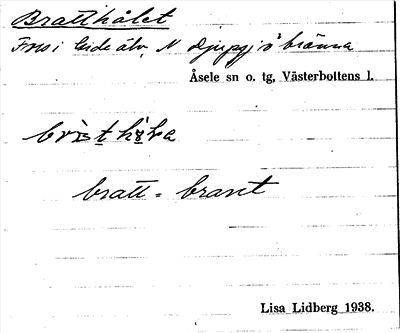 Bratthålet
Fors i Gide älv N Djupsjöbränna
Åsele sn o. tg, Västerbottens l.
bratt = brant
Lisa Lidberg 1938.